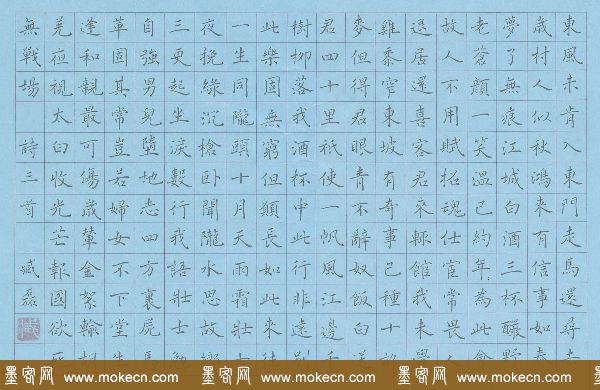 東風未肯入東門走馬還尋去
歲村人似秋鴻來有信事如春
夢了無痕江城白酒三杯釅野
老蒼顏一笑溫已約年為此會
故人不用賦招魂仕宦常畏人
退居還喜客君來輒館我未
雞黍窄東坡有奇事已種十
麥但得君眼青不辭奴飯白
君四十里祇使一帆風江邊千
樹柳落我酒杯中此行非遠別
此樂固無窮但願長如此來
一生同隴頭十月天雨霜壯士
夜挽綠沉槍臥聞隴水思故鄉
三更起坐淚數行我語壯士勉
自強男兒墮地志四方裹屍馬
革固其常豈若婦女不下堂生
逢和親最可傷歲輦金絮輸胡
羌夜視太白收光芒報國欲死
無戰場 詩三首 臧磊
墨客网 www.mokecn.com 墨客网 www.mokecn.com 墨客网 www.mokecn.com